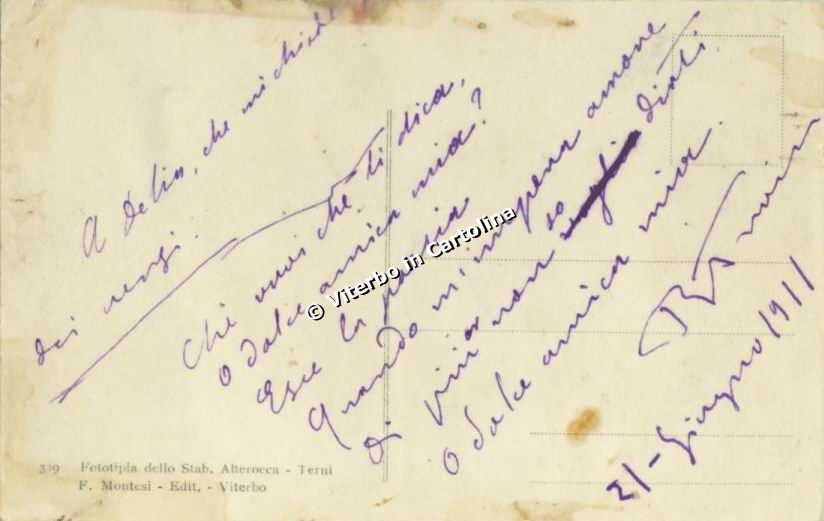 A Delia, che mi chiede
dei versi.
Che vuoi che ti dica,
O dolce amica mia?
Esce la poesia
Quando m'impera amore
Di viver non so dirti.
O dolce amica mia.
21 - Giugno 1911
© Viterbo in Cartolina
329 Fototipia dello Stab. Alterocca - Terni
F. Montesi - Edit. - Viterbo